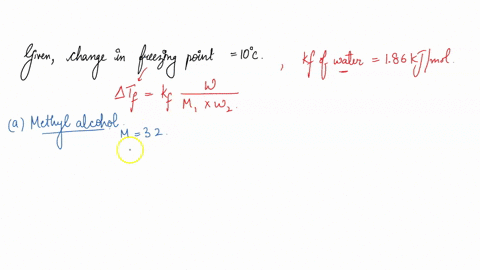 Given, change in freezing point = 10°C. , kf of water = 1.86 kJ/mol.
ΔTf = kf W / M₁ × W₂
(a) Methyl alcohol.
M = 32.